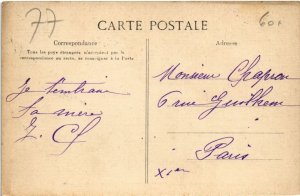 77
60x
CARTE POSTALE
Correspondance
Tous les pays étrangers n'acceptent pas la
correspondance au recto, se renseigner à la Poste
Adresse
Je t'embrasse
ta mère
Z. Ch
Monsieur Chapron
6 rue
Paris
XIer